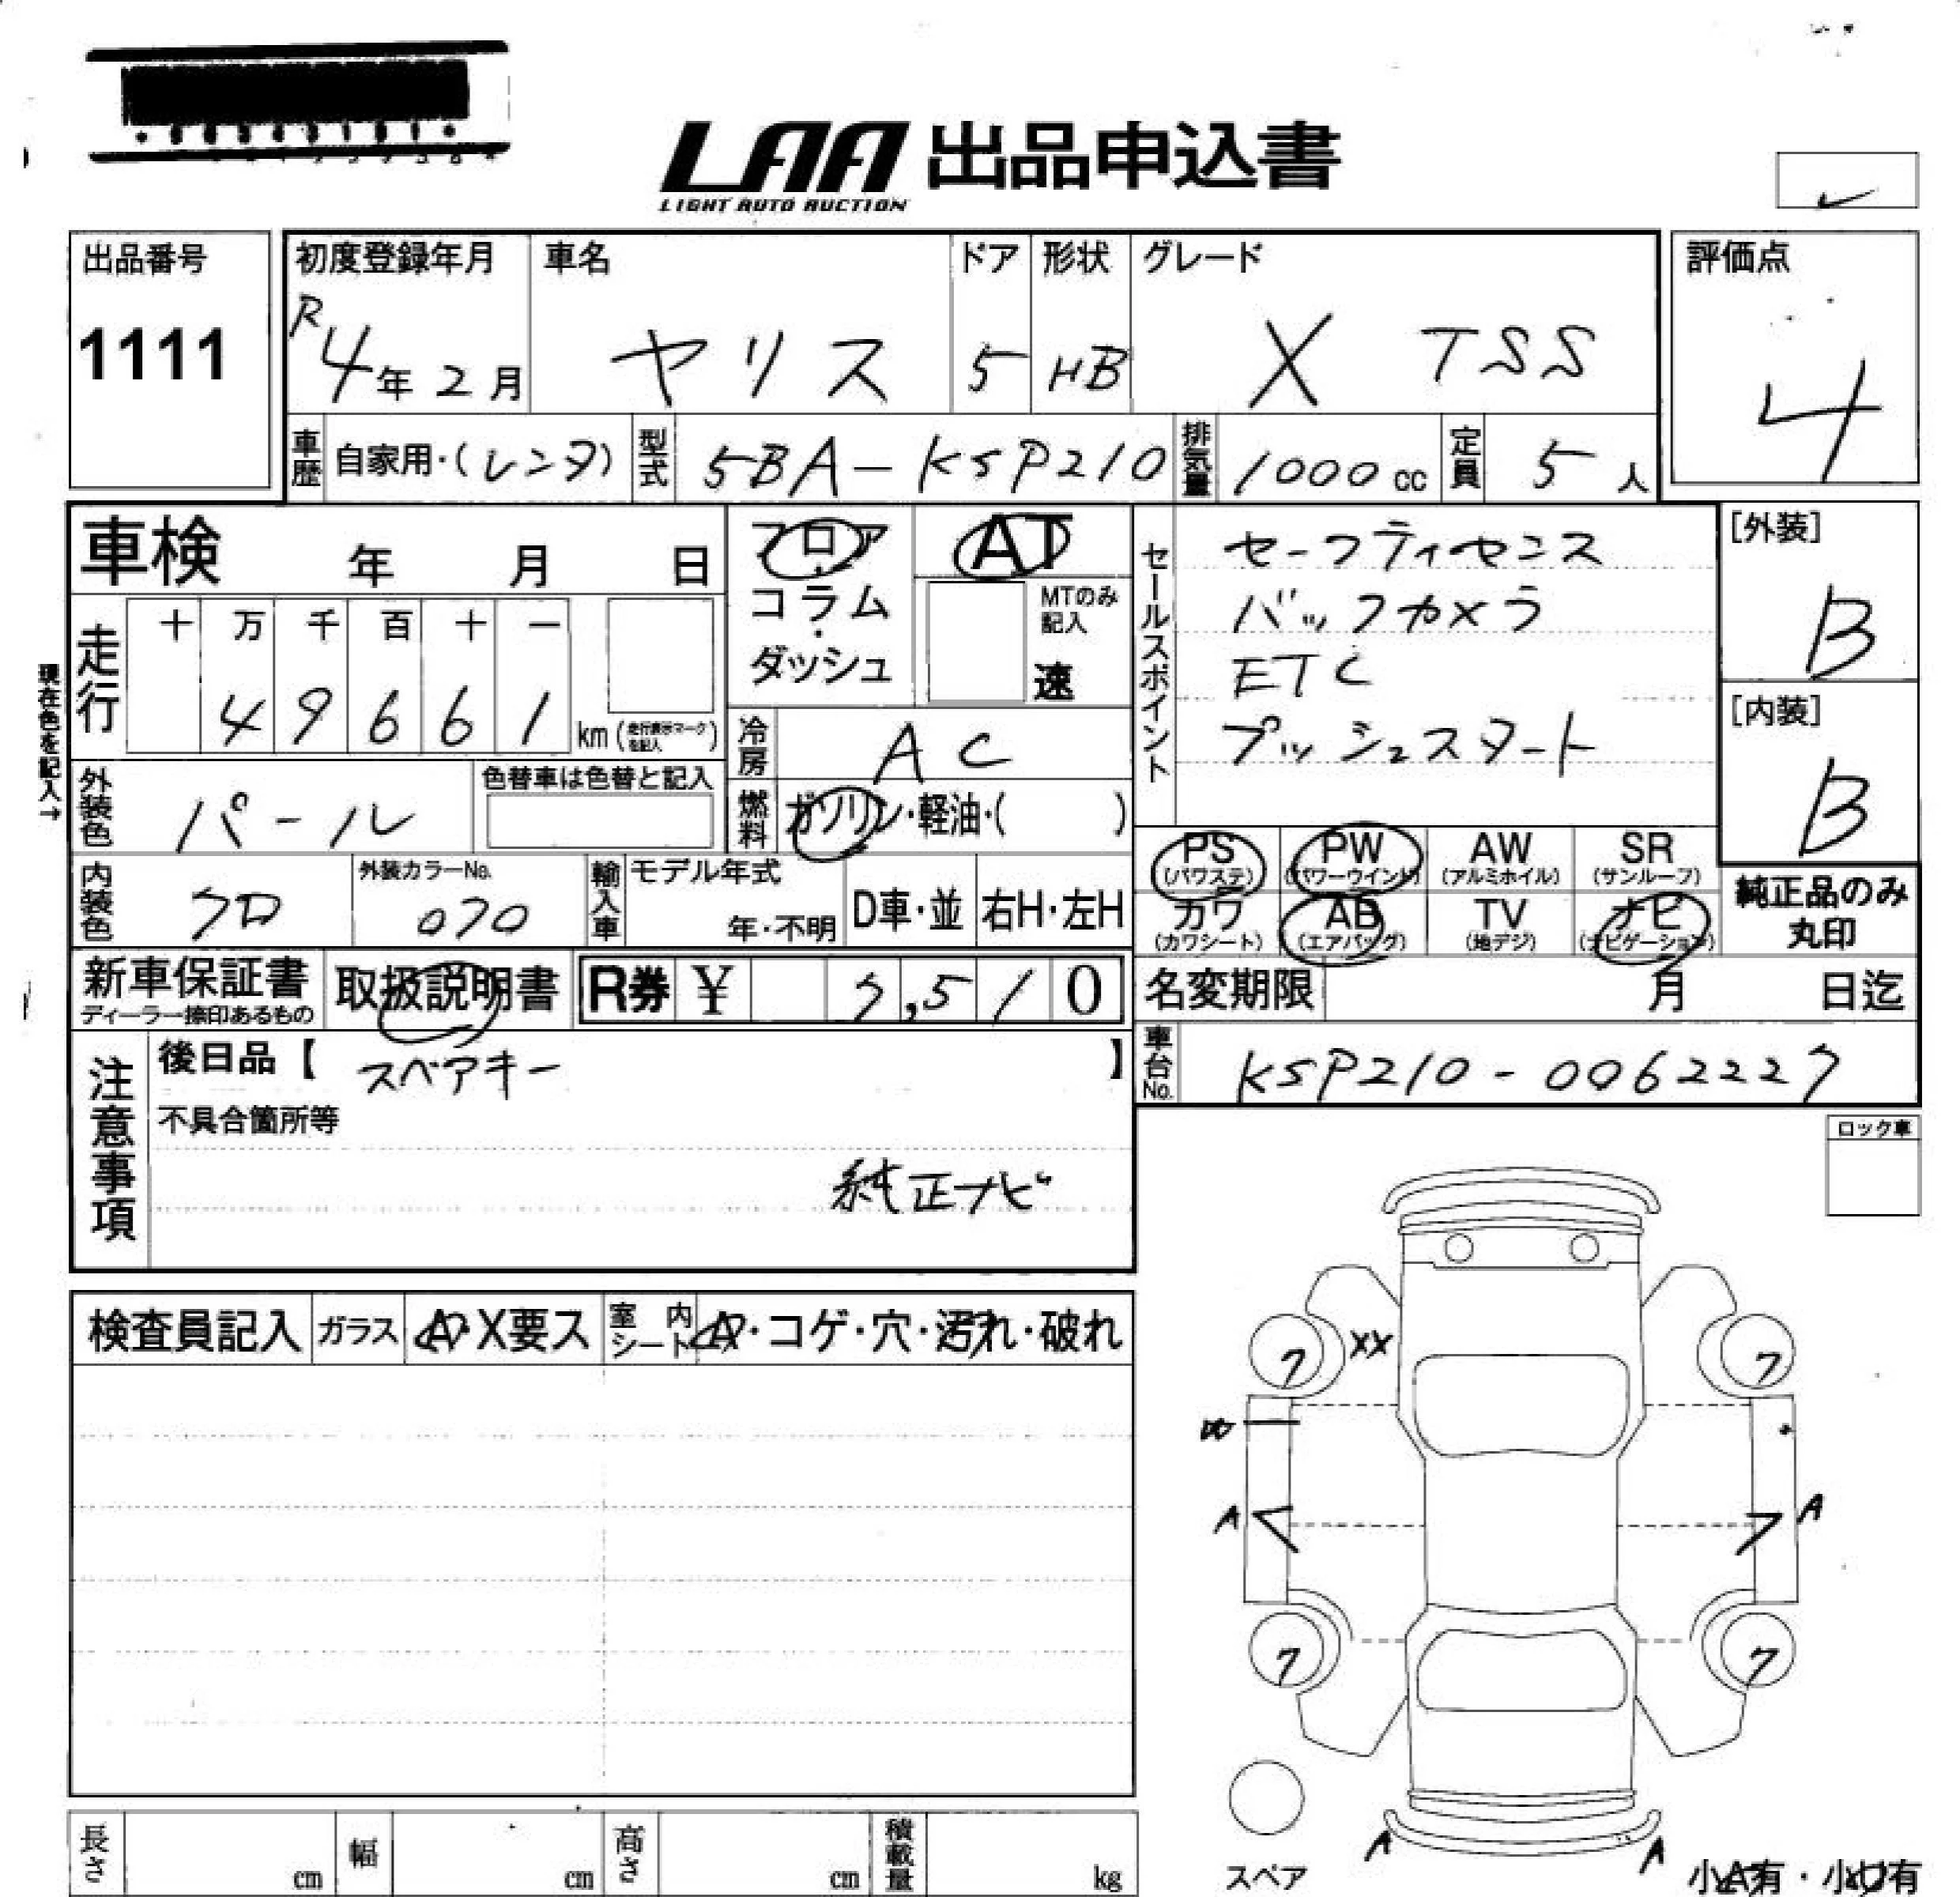 LAA 出品申込書
LIGHT AUTO AUCTION
出品番号
1111
初度登録年月
R4年2月
車名
ヤリス
ドア
5
形状
HB
グレード
X TSS
評価点
4
車歴
自家用・(レンタ)
型式
5BA-KSP210
排気量
1000cc
定員
5人
車検 年 月 日
フロア・コラム・ダッシュ
AT
MTのみ記入
速
セールスポイント
セーフティセンス
バックカメラ
ETC
プッシュスタート
[外装]
B
[内装]
B
現在色を記入→
走行
十 万 千 百 十 一
4 9 6 6 1 km
冷房
AC
外装色
パール
色替車は色替と記入
燃料
ガソリン・軽油・( )
PS
(パワステ)
PW
(パワーウインド)
AW
(アルミホイル)
SR
(サンルーフ)
カワ
(カワシート)
AB
(エアバッグ)
TV
(地デジ)
ナビ
(ナビゲーション)
純正品のみ
丸印
内装色
クロ
外装カラーNo.
070
輸入車
モデル年式
年・不明
D車・並
右H・左H
新車保証書
ディーラー捺印あるもの
取扱説明書
R券 ¥ 7,510
名変期限 月 日迄
注意事項
後日品【 スペアキー 】
不具合箇所等
純正ナビ
車台No.
KSP210-0062227
ロック車
検査員記入
ガラス
A・X要ス
室内シート
A・コゲ・穴・汚れ・破れ
7
XX
7
A
A
7
7
スペア
A
A
小A有・小U有
長さ cm
幅 cm
高さ cm
積載量 kg